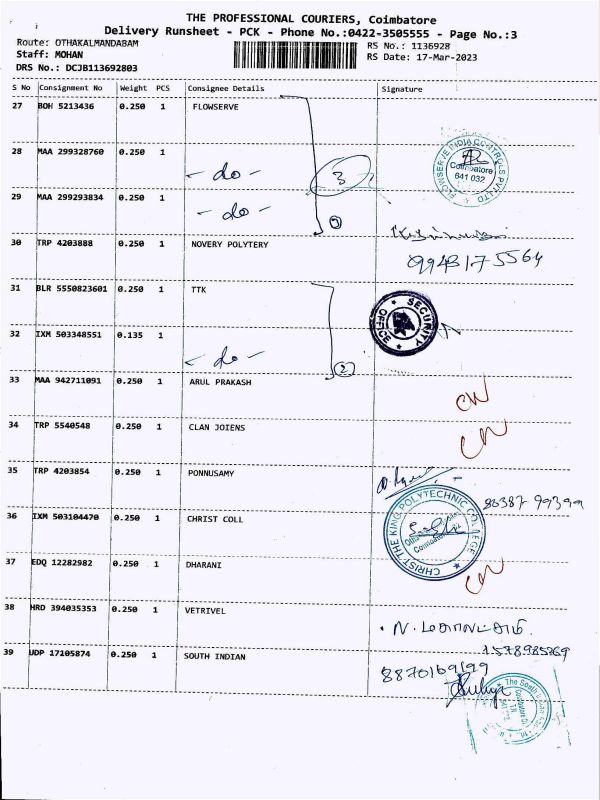 THE PROFESSIONAL COURIERS, Coimbatore
Delivery Runsheet - PCK - Phone No.:0422-3505555 - Page No.:3
Route: OTHAKALMANDABAM
RS No.: 1136928
Staff: MOHAN
RS Date: 17-Mar-2023
DRS No.: DCJB113692803
S No Consignment No Weight PCS Consignee Details Signature
27 BOH 5213436 0.250 1 FLOWSERVE
28 MAA 299328760 0.250 1 - do -
3
FLOWSERVE INDIA CONTROLS PVT LTD
Coimbatore
641 032
29 MAA 299293834 0.250 1 - do -
30 TRP 4203888 0.250 1 NOVERY POLYTERY
9943175564
31 BLR 5550823601 0.250 1 TTK
SECURITY OFFICE
32 IXM 503348551 0.135 1 - do -
2
33 MAA 942711091 0.250 1 ARUL PRAKASH CN
34 TRP 5540548 0.250 1 CLAN JOIENS CN
35 TRP 4203854 0.250 1 PONNUSAMY
36 IXM 503104470 0.250 1 CHRIST COLL
CHRIST THE KING POLYTECHNIC COLLEGE
37 EDQ 12282982 0.250 1 DHARANI CN
38 HRD 394035353 0.250 1 VETRIVEL
39 UDP 17105874 0.250 1 SOUTH INDIAN
8870169199
The South